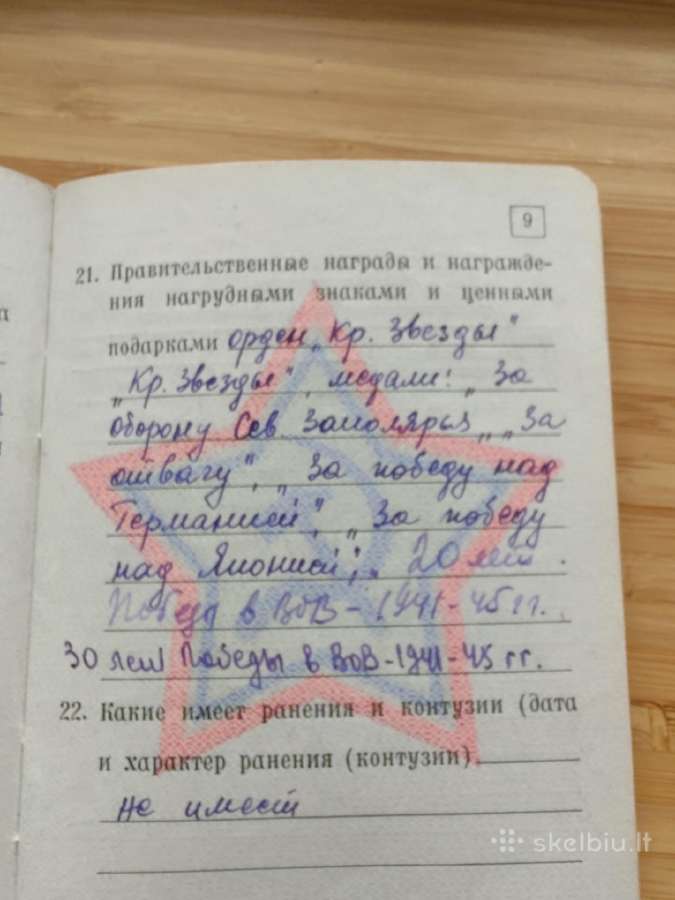 9
21. Правительственные награды и награжде-
ния нагрудными знаками и ценными
подарками орден „Кр. Звезды"
„Кр. Звезды", медали: „За
оборону Сев. Заполярья„ „За
отвагу", „За победу над
Германией", „За победу
над Японией", 20 лет
Победы в ВОВ-1941-45 гг.
30 лет Победы в ВОВ-1941-45 гг.
22. Какие имеет ранения и контузии (дата
и характер ранения (контузии)
Не имеет
skelbiu.lt